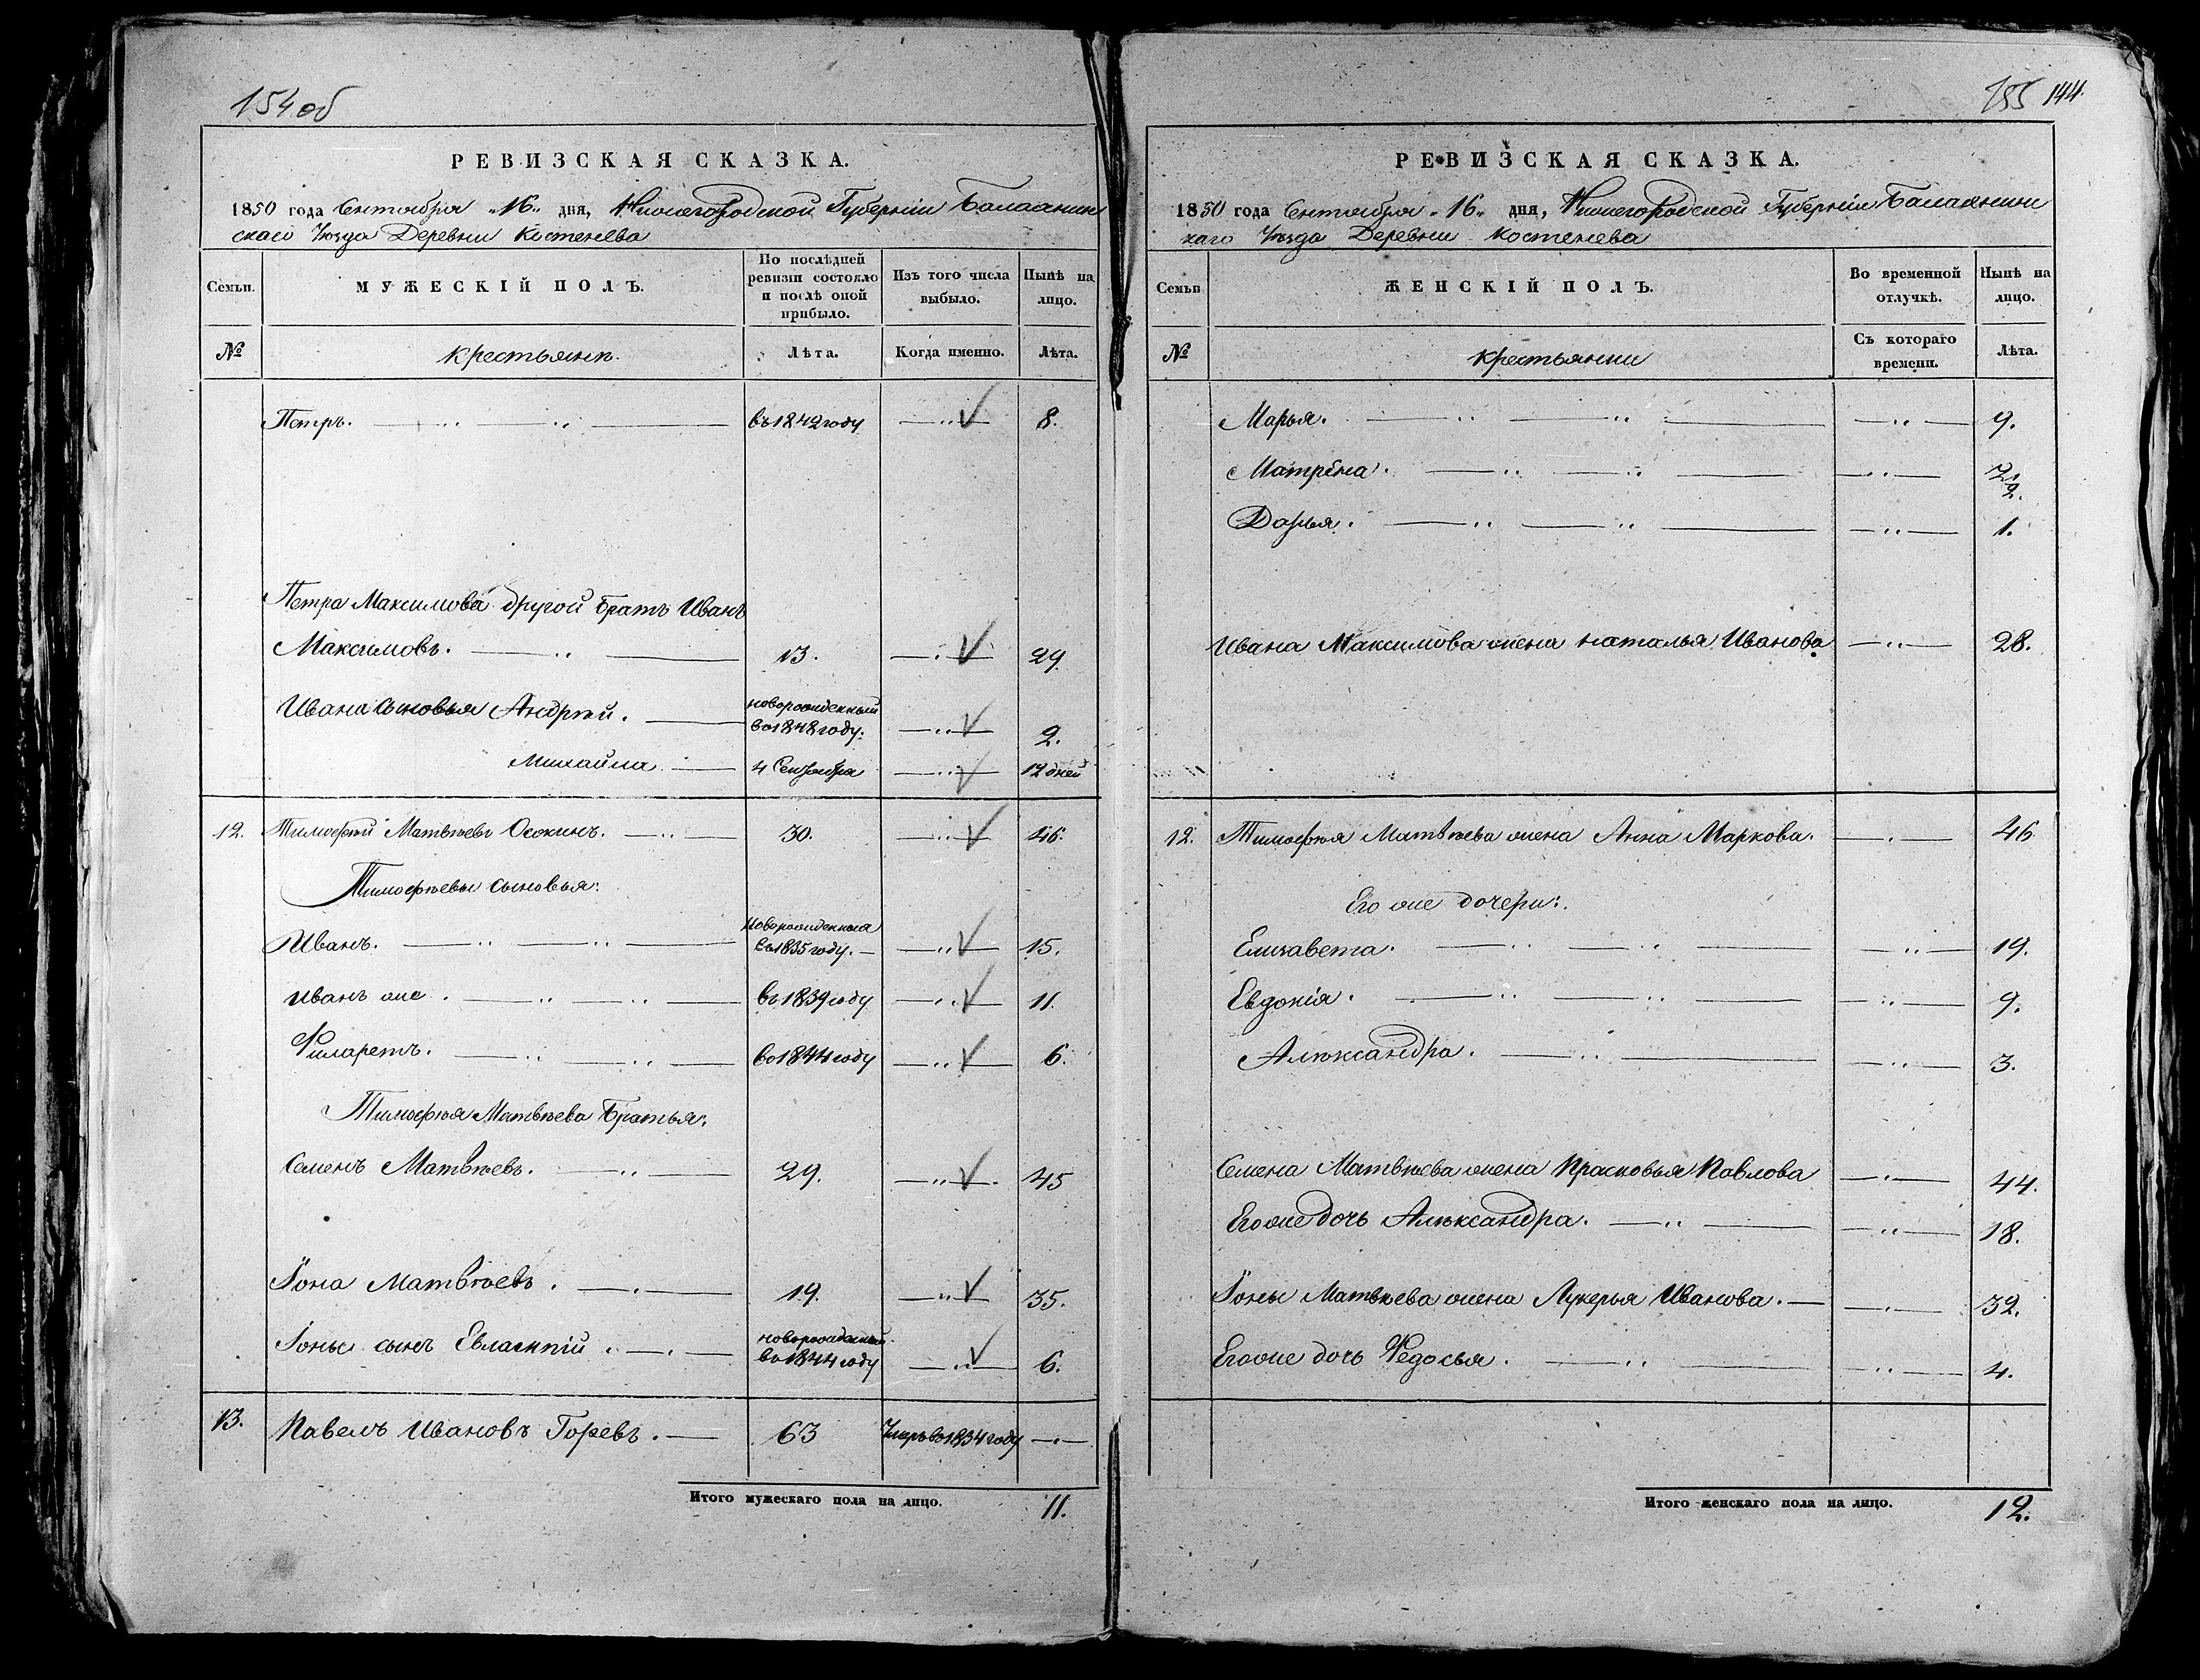 154 об
РЕВИЗСКАЯ СКАЗКА.
1850 года Сентября „16„ дня, Нижегородской Губерніи Балахнин
скаго Уѣзда Деревни Костенева
Семьи.
МУЖЕСКІЙ ПОЛЪ.
По послѣдней ревизіи состояло и послѣ оной прибыло.
Изъ того числа выбыло.
Нынѣ на лицо.
№
крестьяне.
Лѣта.
Когда именно.
Лѣта.
Петръ. въ 1842 году 8.
Петра Максимова другой братъ Иванъ
Максимовъ. 13. 29.
Ивана сыновья Андрѣй. новорожденный во 1848 году. 2.
Михайла 4 Сентября 12 дней
12. Тимофѣй Матвѣевъ Осокинъ. 30. 46.
Тимофѣевы сыновья:
Иванъ. новорожденныя въ 1835 году. 15.
Иванъ же. въ 1839 году 11.
Филаретъ. во 1844 году 6.
Тимофѣя Матвѣева братья:
Семенъ Матвѣевъ. 29. 45
Іона Матвѣевъ. 19. 35.
Іоны сынъ Евлампій. новорожденный во 1844 году 6.
13. Павелъ Ивановъ Горевъ. 63 Умръ во 1834 году
Итого мужескаго пола на лицо. 11.
155 144.
РЕВИЗСКАЯ СКАЗКА.
1850 года Сентября „16„ дня, Нижегородской Губерніи Балахнин
скаго Уѣзда Деревни Костенева
Семьи
ЖЕНСКІЙ ПОЛЪ.
Во временной отлучкѣ.
Нынѣ на лицо.
№
крестьянки
Съ котораго времени.
Лѣта.
Марья. 9.
Матрёна. 7 1/2.
Дарья. 1.
Ивана Максимова жена Наталья Иванова 28.
12. Тимофѣя Матвѣева жена Анна Маркова. 46
Его же дочери:
Елизавета. 19.
Евдокія. 9.
Алѣксандра. 3.
Семена Матвѣева жена Прасковья Павлова 44.
Его же дочь Алѣксандра. 18.
Іоны Матвѣева жена Лукерья Иванова. 32.
Его же дочь Федосья. 4.
Итого женскаго пола на лицо. 12.